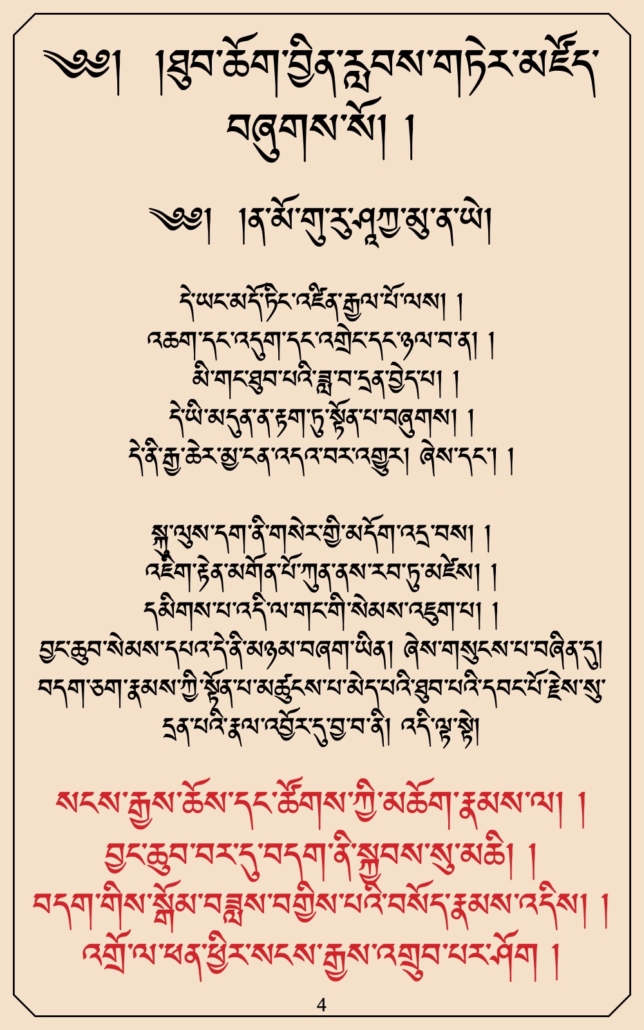 ༄༅། །ཐུབ་ཆོག་བྱིན་རླབས་གཏེར་མཛོད་
བཞུགས་སོ། །
༄༅། །ན་མོ་གུ་རུ་ཤཱཀྱ་མུ་ན་ཡེ།
དེ་ཡང་མདོ་ཏིང་འཛིན་རྒྱལ་པོ་ལས། །
འཆག་དང་འདུག་དང་འགྲེང་དང་ཉལ་བ་ན། །
མི་གང་ཐུབ་པའི་ཟླ་བ་དྲན་བྱེད་པ། །
དེ་ཡི་མདུན་ན་རྟག་ཏུ་སྟོན་པ་བཞུགས། །
དེ་ནི་རྒྱ་ཆེར་མྱ་ངན་འདའ་བར་འགྱུར། ཞེས་དང་། །
སྐུ་ལུས་དག་ནི་གསེར་གྱི་མདོག་འདྲ་བས། །
འཇིག་རྟེན་མགོན་པོ་ཀུན་ནས་རབ་ཏུ་མཛེས། །
དམིགས་པ་འདི་ལ་གང་གི་སེམས་འཇུག་པ། །
བྱང་ཆུབ་སེམས་དཔའ་དེ་ནི་མཉམ་བཞག་ཡིན། ཞེས་གསུངས་པ་བཞིན་དུ།
བདག་ཅག་རྣམས་ཀྱི་སྟོན་པ་མཚུངས་པ་མེད་པའི་ཐུབ་པའི་དབང་པོ་རྗེས་སུ་
དྲན་པའི་རྣལ་འབྱོར་དུ་བྱ་བ་ནི། འདི་ལྟ་སྟེ།
སངས་རྒྱས་ཆོས་དང་ཚོགས་ཀྱི་མཆོག་རྣམས་ལ། །
བྱང་ཆུབ་བར་དུ་བདག་ནི་སྐྱབས་སུ་མཆི། །
བདག་གིས་སྒོམ་བཟླས་བགྱིས་པའི་བསོད་རྣམས་འདིས། །
འགྲོ་ལ་ཕན་ཕྱིར་སངས་རྒྱས་འགྲུབ་པར་ཤོག །
4